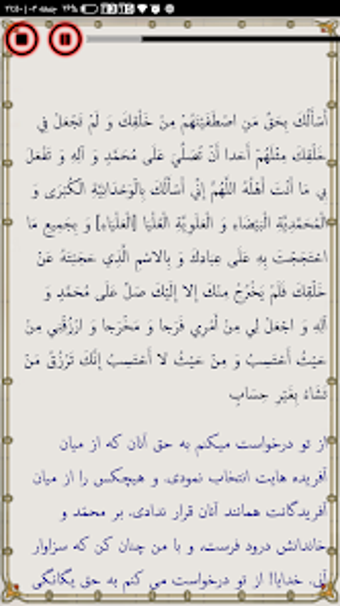 ۲۶%
أَسْأَلُكَ بِحَقِّ مَنِ اصْطَفَيْتَهُمْ مِنْ خَلْقِكَ وَ لَمْ تَجْعَلْ فِي
خَلْقِكَ مِثْلَهُمْ أَحَدا أَنْ تُصَلِّيَ عَلَى مُحَمَّدٍ وَ آلِهِ وَ تَفْعَلَ
بِي مَا أَنْتَ أَهْلُهُ اللَّهُمَّ إِنِّي أَسْأَلُكَ بِالْوَحْدَانِيَّةِ الْكُبْرَى وَ
الْمُحَمَّدِيَّةِ الْبَيْضَاءِ وَ الْعَلَوِيَّةِ الْعُلْيَا [الْعَلْيَاءِ] وَ بِجَمِيعِ مَا
احْتَجَجْتَ بِهِ عَلَى عِبَادِكَ وَ بِالاسْمِ الَّذِي حَجَبْتَهُ عَنْ
خَلْقِكَ فَلَمْ يَخْرُجْ مِنْكَ إِلا إِلَيْكَ صَلِّ عَلَى مُحَمَّدٍ وَ
آلِهِ وَ اجْعَلْ لِي مِنْ أَمْرِي فَرَجا وَ مَخْرَجا وَ ارْزُقْنِي مِنْ
حَيْثُ أَحْتَسِبُ وَ مِنْ حَيْثُ لا أَحْتَسِبُ إِنَّكَ تَرْزُقُ مَنْ
تَشَاءُ بِغَيْرِ حِسَابٍ
از تو درخواست میکنم به حق آنان که از میان
آفریده هایت انتخاب نمودی، و هیچکس را از میان
آفریدگانت همانند آنان قرار ندادی، بر محمّد و
خاندانش درود فرست، و با من چنان کن که سزاوار
آنی، خدایا! از تو درخواست می کنم به حق یگانگی